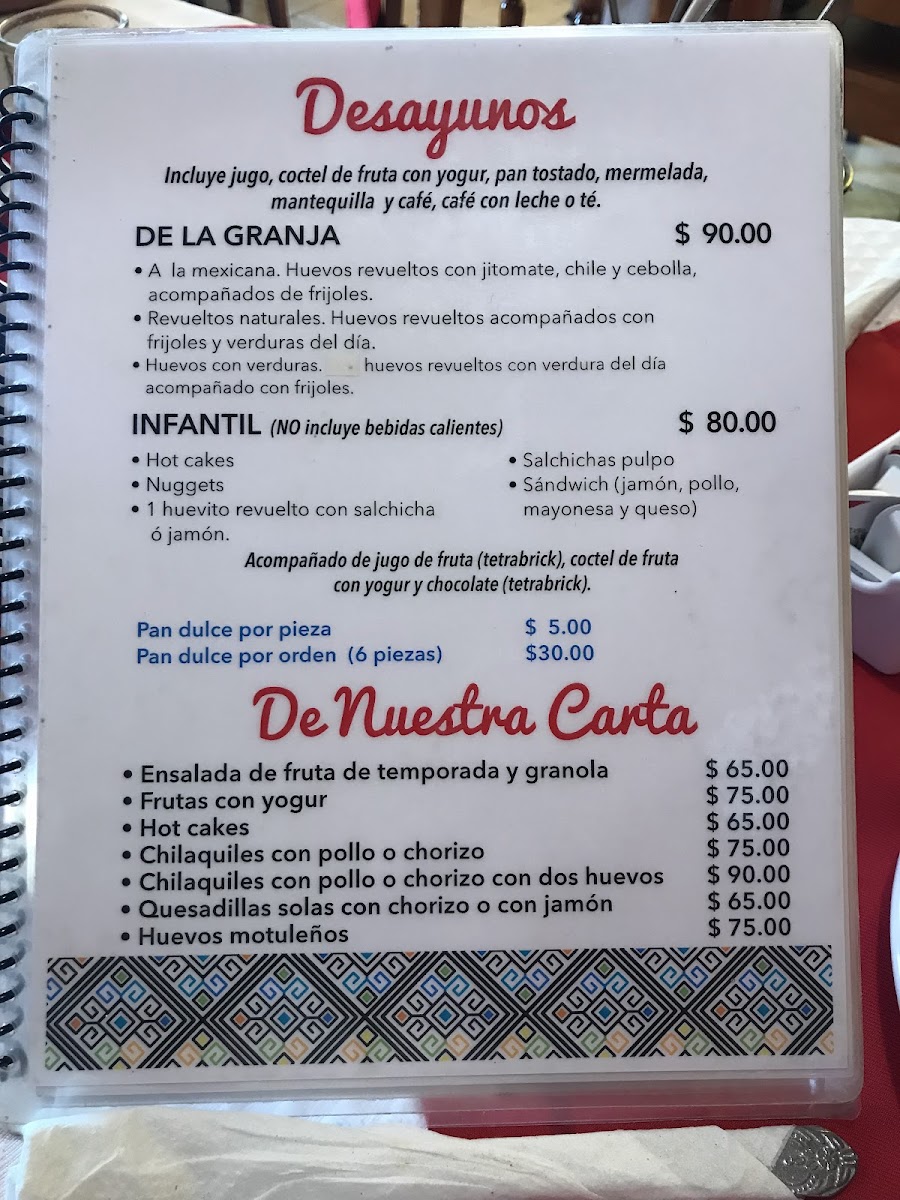 Desayunos
Incluye jugo, coctel de fruta con yogur, pan tostado, mermelada,
mantequilla y café, café con leche o té.
DE LA GRANJA $ 90.00
• A la mexicana. Huevos revueltos con jitomate, chile y cebolla,
acompañados de frijoles.
• Revueltos naturales. Huevos revueltos acompañados con
frijoles y verduras del día.
• Huevos con verduras. huevos revueltos con verdura del día
acompañado con frijoles.
INFANTIL (NO incluye bebidas calientes) $ 80.00
• Hot cakes
• Nuggets
• 1 huevito revuelto con salchicha
ó jamón.
• Salchichas pulpo
• Sándwich (jamón, pollo,
mayonesa y queso)
Acompañado de jugo de fruta (tetrabrick), coctel de fruta
con yogur y chocolate (tetrabrick).
Pan dulce por pieza $ 5.00
Pan dulce por orden (6 piezas) $30.00
De Nuestra Carta
• Ensalada de fruta de temporada y granola $ 65.00
• Frutas con yogur $ 75.00
• Hot cakes $ 65.00
• Chilaquiles con pollo o chorizo $ 75.00
• Chilaquiles con pollo o chorizo con dos huevos $ 90.00
• Quesadillas solas con chorizo o con jamón $ 65.00
• Huevos motuleños $ 75.00